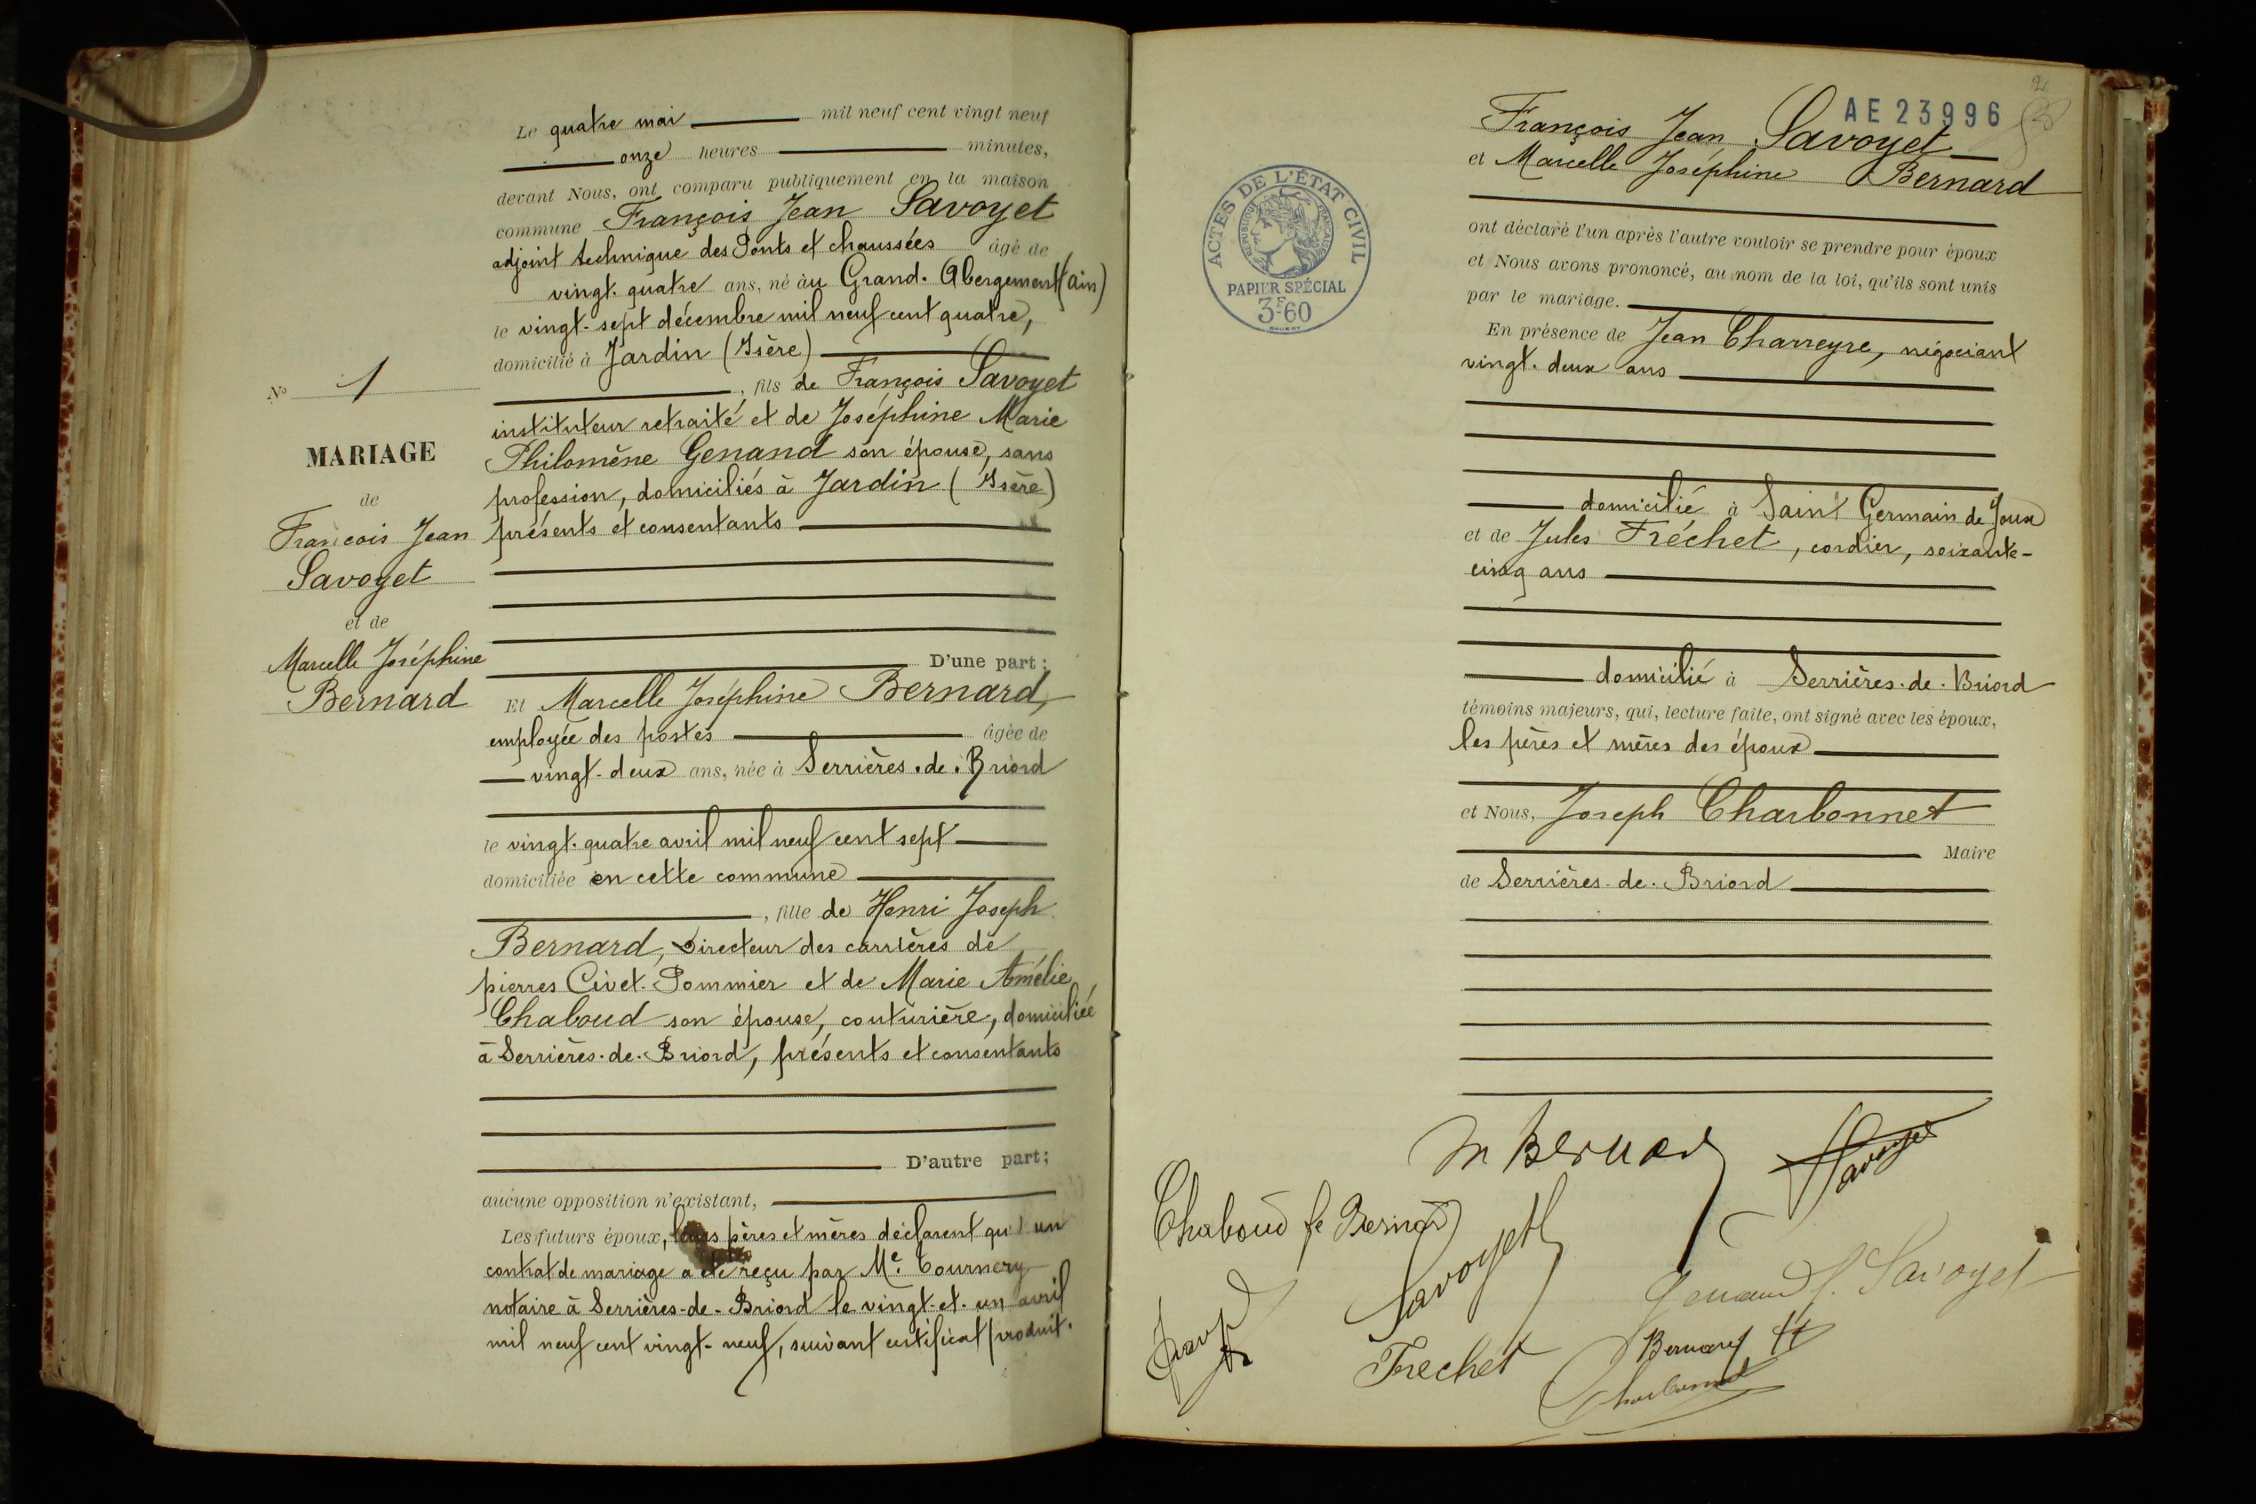 Le quatre mai mil neuf cent vingt neuf
onze heures minutes,
devant Nous, ont comparu publiquement en la maison
commune François Jean Savoyet
adjoint technique des Ponts et chaussées âgé de
vingt-quatre ans, né au Grand-Abergement (Ain)
le vingt-sept décembre mil neuf cent quatre,
domicilié à Jardin (Isère)
, fils de François Savoyet
instituteur retraité et de Joséphine Marie
Philomène Genand son épouse, sans
profession, domiciliés à Jardin (Isère)
présents et consentants
D'une part;
Et Marcelle Joséphine Bernard,
employée des postes âgée de
vingt-deux ans, née à Serrières-de-Briord
le vingt-quatre avril mil neuf cent sept
domiciliée en cette commune
, fille de Henri Joseph
Bernard, Directeur des carrières de
pierres Civet-Pommier et de Marie Amélie
Chaboud son épouse, couturière, domiciliée
à Serrières-de-Briord, présents et consentants
D'autre part;
aucune opposition n'existant,
Les futurs époux, leurs pères et mères déclarent qu'un
contrat de mariage a été reçu par Me. Tournery
notaire à Serrières-de-Briord le vingt-et-un avril
mil neuf cent vingt-neuf, suivant certificat produit.
No 1
MARIAGE
de
François Jean
Savoyet
et de
Marcelle Joséphine
Bernard
ACTES DE L'ÉTAT CIVIL
RÉPUBLIQUE FRANÇAISE
PAPIER SPÉCIAL
3F60
AE 23996
François Jean Savoyet
et Marcelle Joséphine Bernard
ont déclaré l'un après l'autre vouloir se prendre pour époux
et Nous avons prononcé, au nom de la loi, qu'ils sont unis
par le mariage.
En présence de Jean Charreyre, négociant
vingt-deux ans
domicilié à Saint Germain de Joux
et de Jules Fréchet, cordier, soixante-
cinq ans
domicilié à Serrières-de-Briord
témoins majeurs, qui, lecture faite, ont signé avec les époux,
les pères et mères des époux
et Nous, Joseph Charbonnet
Maire
de Serrières-de-Briord
M Bernard
Savoyet
Chaboud fe Bernard
Savoyet
Genand f. Savoyet
Frechet
Bernard H
Charbonnet